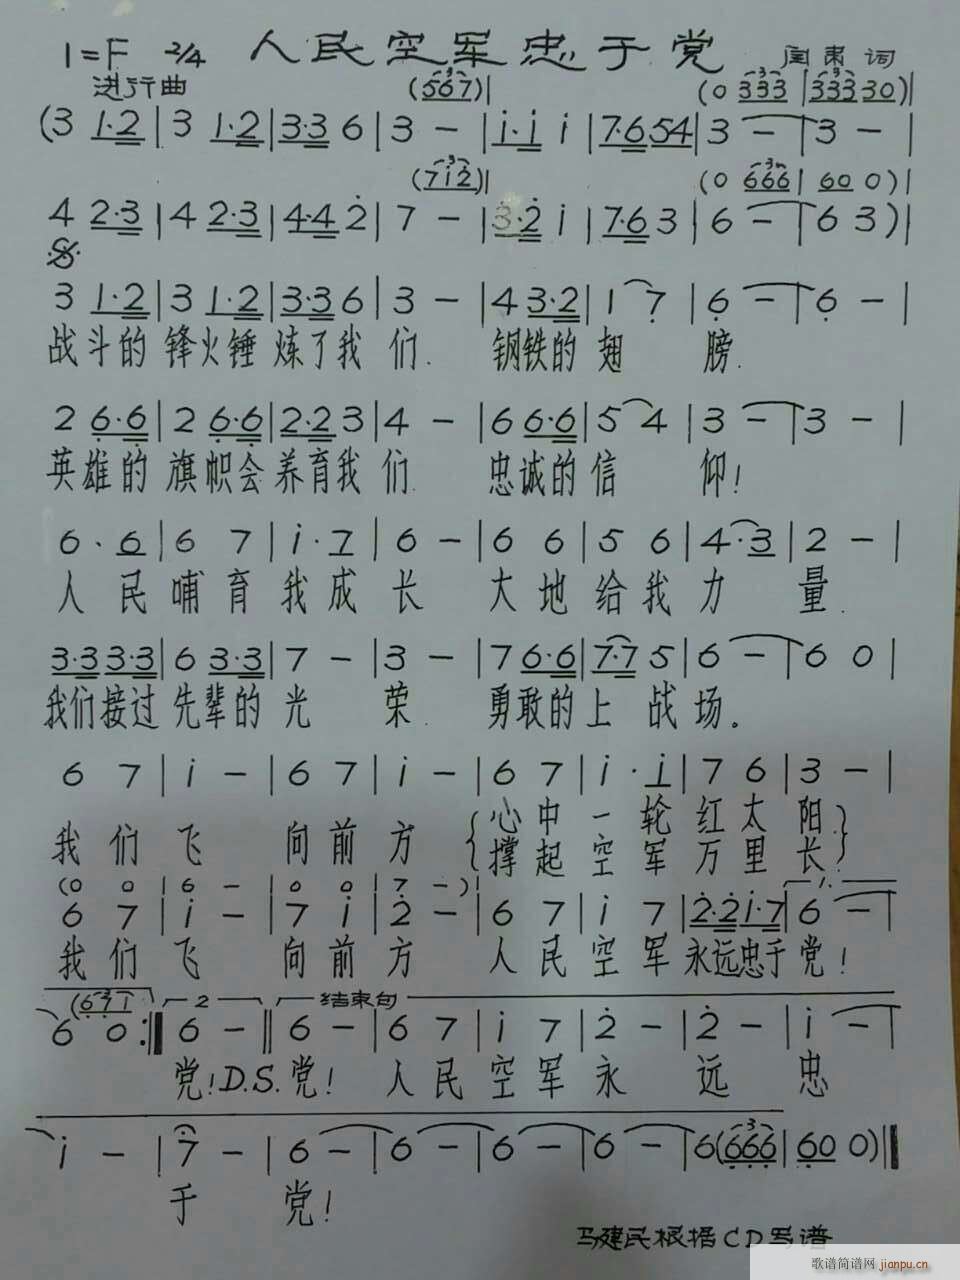 1=F 2/4 人民空军忠于党 闫肃 词
进行曲 (567)| (0 333 | 33330)|
(3 1·2 | 3 1·2 | 3·3 6 | 3 - | i·i i | 7·654 | 3 - | 3 - |
(7i2)| (0 666 | 60 0)|
4 2·3 | 4 2·3 | 4·4 2 | 7 - | 3·2 i | 7·6 3 | 6 - | 6 3)|
3 1·2 | 3 1·2 | 3·3 6 | 3 - | 4 3·2 | 1 7 | 6 - | 6 - |
战斗的 锋火锤 炼了我们. 钢铁的翅膀.
2 6·6 | 2 6·6 | 2·2 3 | 4 - | 6 6·6 | 5 4 | 3 - | 3 - |
英雄的 旗帜会 养育我们 忠诚的信仰!
6 · 6 | 6 7 | i · 7 | 6 - | 6 6 | 5 6 | 4·3 | 2 - |
人民哺育我成长 大地给我力量.
3·3 3·3 | 6 3·3 | 7 - | 3 - | 7 6·6 | 7·7 5 | 6 - | 6 0 |
我们接过先辈的光荣. 勇敢的上战场。
6 7 | i - | 6 7 | i - | 6 7 | i · i | 7 6 | 3 - |
我们飞向前方 {心中一轮红太阳}
{撑起空军万里长}
(0 0 | 6 - | 0 0 | 7 - )| 1.
6 7 | i - | 7 i | 2 - | 6 7 | i 7 | 2·2 i·7 | 6 - |
我们飞向前方 人民空军永远忠于党!
(671 2 结束句
6 0 :| 6 - || 6 - | 6 7 | i 7 | 2 - | 2 - | i - |
党! D.S. 党! 人民空军永远忠
i - | 7 - | 6 - | 6 - | 6 - | 6 - | 6 (666 | 60 0)||
于党!
马建民根据CD写谱
歌谱简谱网 jianpu.cn